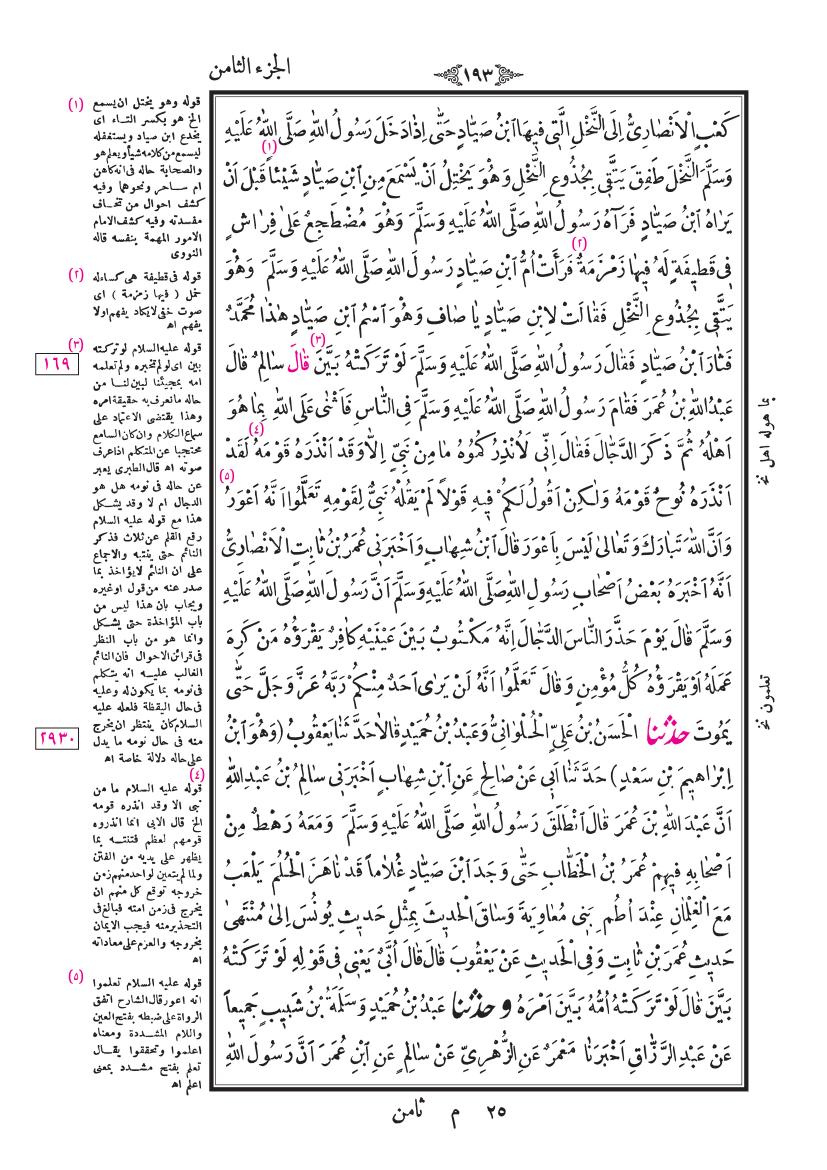 ١٩٣
الجزء الثامن
كَعْبٍ الْاَنْصَارِيُّ اِلَى النَّخْلِ الَّتِي فِيهَا ابْنُ صَيَّادٍ حَتّٰى اِذَا دَخَلَ رَسُولُ اللهِ صَلَّى اللهُ عَلَيْهِ
وَسَلَّمَ النَّخْلَ طَفِقَ يَتَّقِي بِجُذُوعِ النَّخْلِ وَهُوَ يَخْتِلُ (١) اَنْ يَسْمَعَ مِنِ ابْنِ صَيَّادٍ شَيْئًا قَبْلَ اَنْ
يَرَاهُ ابْنُ صَيَّادٍ فَرَآهُ رَسُولُ اللهِ صَلَّى اللهُ عَلَيْهِ وَسَلَّمَ وَهُوَ مُضْطَجِعٌ عَلٰى فِرَاشٍ
فِي قَطِيفَةٍ لَهُ فِيهَا زَمْزَمَةٌ (٢) فَرَأَتْ اُمُّ ابْنِ صَيَّادٍ رَسُولَ اللهِ صَلَّى اللهُ عَلَيْهِ وَسَلَّمَ وَهُوَ
يَتَّقِي بِجُذُوعِ النَّخْلِ فَقَالَتْ لِابْنِ صَيَّادٍ يَا صَافِ وَهُوَ اسْمُ ابْنِ صَيَّادٍ هٰذَا مُحَمَّدٌ
فَثَارَ ابْنُ صَيَّادٍ فَقَالَ رَسُولُ اللهِ صَلَّى اللهُ عَلَيْهِ وَسَلَّمَ لَوْ تَرَكَتْهُ بَيَّنَ (٣) قَالَ سَالِمٌ قَالَ
عَبْدُ اللهِ بْنُ عُمَرَ فَقَامَ رَسُولُ اللهِ صَلَّى اللهُ عَلَيْهِ وَسَلَّمَ فِي النَّاسِ فَاَثْنٰى عَلَى اللهِ بِمَا هُوَ
اَهْلُهُ ثُمَّ ذَكَرَ الدَّجَّالَ فَقَالَ اِنِّي لَاُنْذِرُكُمُوهُ مَا مِنْ نَبِيٍّ اِلَّا وَقَدْ اَنْذَرَهُ قَوْمَهُ (٤) لَقَدْ
اَنْذَرَهُ نُوحٌ قَوْمَهُ وَلٰكِنْ اَقُولُ لَكُمْ فِيهِ قَوْلاً لَمْ يَقُلْهُ نَبِيٌّ لِقَوْمِهِ تَعَلَّمُوا اَنَّهُ اَعْوَرُ (٥)
وَاَنَّ اللهَ تَبَارَكَ وَتَعَالٰى لَيْسَ بِاَعْوَرَ قَالَ ابْنُ شِهَابٍ وَاَخْبَرَنِي عُمَرُ بْنُ ثَابِتٍ الْاَنْصَارِيُّ
اَنَّهُ اَخْبَرَهُ بَعْضُ اَصْحَابِ رَسُولِ اللهِ صَلَّى اللهُ عَلَيْهِ وَسَلَّمَ اَنَّ رَسُولَ اللهِ صَلَّى اللهُ عَلَيْهِ
وَسَلَّمَ قَالَ يَوْمَ حَذَّرَ النَّاسَ الدَّجَّالَ اِنَّهُ مَكْتُوبٌ بَيْنَ عَيْنَيْهِ كَافِرٌ يَقْرَؤُهُ مَنْ كَرِهَ
عَمَلَهُ اَوْ يَقْرَؤُهُ كُلُّ مُؤْمِنٍ وَقَالَ تَعَلَّمُوا اَنَّهُ لَنْ يَرٰى اَحَدٌ مِنْكُمْ رَبَّهُ عَزَّ وَجَلَّ حَتّٰى
يَمُوتَ حَدَّثَنَا الْحَسَنُ بْنُ عَلِيٍّ الْحُلْوَانِيُّ وَعَبْدُ بْنُ حُمَيْدٍ قَالَا حَدَّثَنَا يَعْقُوبُ (وَهُوَ ابْنُ
اِبْرَاهِيمَ بْنِ سَعْدٍ) حَدَّثَنَا اَبِي عَنْ صَالِحٍ عَنِ ابْنِ شِهَابٍ اَخْبَرَنِي سَالِمُ بْنُ عَبْدِ اللهِ
اَنَّ عَبْدَ اللهِ بْنَ عُمَرَ قَالَ انْطَلَقَ رَسُولُ اللهِ صَلَّى اللهُ عَلَيْهِ وَسَلَّمَ وَمَعَهُ رَهْطٌ مِنْ
اَصْحَابِهِ فِيهِمْ عُمَرُ بْنُ الْخَطَّابِ حَتّٰى وَجَدَ ابْنَ صَيَّادٍ غُلَاماً قَدْ نَاهَزَ الْحُلُمَ يَلْعَبُ
مَعَ الْغِلْمَانِ عِنْدَ اُطُمِ بَنِي مُعَاوِيَةَ وَسَاقَ الْحَدِيثَ بِمِثْلِ حَدِيثِ يُونُسَ اِلٰى مُنْتَهٰى
حَدِيثِ عُمَرَ بْنِ ثَابِتٍ وَفِي الْحَدِيثِ عَنْ يَعْقُوبَ قَالَ قَالَ اُبَيٌّ يَعْنِي فِي قَوْلِهِ لَوْ تَرَكَتْهُ
بَيَّنَ قَالَ لَوْ تَرَكَتْهُ اُمُّهُ بَيَّنَ اَمْرَهُ وَحَدَّثَنَا عَبْدُ بْنُ حُمَيْدٍ وَسَلَمَةُ بْنُ شَبِيبٍ جَمِيعاً
عَنْ عَبْدِ الرَّزَّاقِ اَخْبَرَنَا مَعْمَرٌ عَنِ الزُّهْرِيِّ عَنْ سَالِمٍ عَنِ ابْنِ عُمَرَ اَنَّ رَسُولَ اللهِ
بما هوله اهل نخ
تعلمون نخ
(١) قوله وهو يختل ان يسمع
الخ هو بكسر التاء اى
يخدع ابن صياد ويستغفله
ليسمع من كلامه شيأ ويعلم هو
والصحابة حاله فى انه كاهن
ام ساحر ونحوهما وفيه
كشف احوال من تخاف
مفسدته وفيه كشف الامام
الامور المهمة بنفسه قاله
النووى
(٢) قوله فى قطيفة هى كساء له
خمل ( فيها زمزمة ) اى
صوت خفى لا يكاد يفهم اولا
يفهم اه
(٣) قوله عليه السلام لو تركته
بين اى لو لم تخبره ولم تعلمه
امه بمجيئنا لبين لنا من
حاله ما نعرف به حقيقة امره
وهذا يقتضى الاعتماد على
سماع الكلام وان كان السامع
محتجبا عن المتكلم اذا عرف
صوته اه قال الطبرى يعبر
عن حاله فى نومه هل هو
الدجال ام لا وقد يشكل
هذا مع قوله عليه السلام
رفع القلم عن ثلاث فذكر
النائم حتى ينتبه والاجماع
على ان النائم لا يؤاخذ بما
صدر عنه من قول او غيره
ويجاب بان هذا ليس من
باب المؤاخذة حتى يشكل
وانما هو من باب النظر
فى قرائن الاحوال فان النائم
الغالب عليه انه يتكلم
فى نومه بما يكون له وعليه
فى حال اليقظة فلعله عليه
السلام كان ينتظر ان يخرج
منه فى حال نومه ما يدل
على حاله دلالة خاصة اه
(٤) قوله عليه السلام ما من
نبى الا وقد انذره قومه
الخ قال الابى انما انذروه
قومهم لعظم فتنته بما
يظهر على يديه من الفتن
ولما لم يتعين لواحد منهم زمن
خروجه توقع كل منهم ان
يخرج فى زمن امته فبالغ فى
التحذير منه فيجب الايمان
بخروجه والعزم على معاداته
اه
(٥) قوله عليه السلام تعلموا
انه اعور قال الشارح اتفق
الرواة على ضبطه بفتح العين
واللام المشددة ومعناه
اعلموا وتحققوا يقال
تعلم بفتح مشدد بمعنى
اعلم اه
١٦٩
٢٩٣٠
٢٥ م ثامن